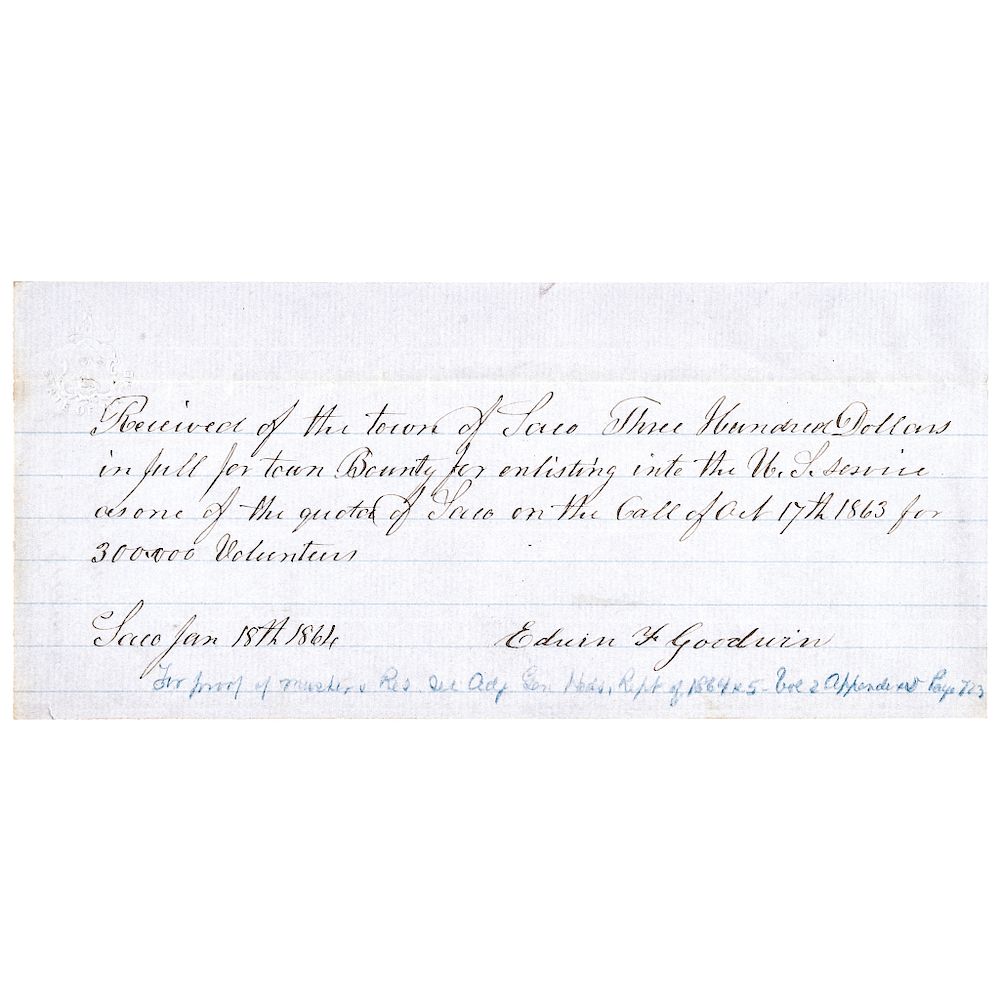 Received of the town of Saco Three Hundred Dollars
in full for town Bounty for enlisting into the U. S. service
as one of the quota of Saco on the Call of Oct 17th 1863 for
300,000 Volunteers
Saco Jan 18th 1864 Edwin F Goodwin
For proof of muster & Res see Adj Gen Rept of 1864 & 5 - Vol 2 Appendix D Page 723